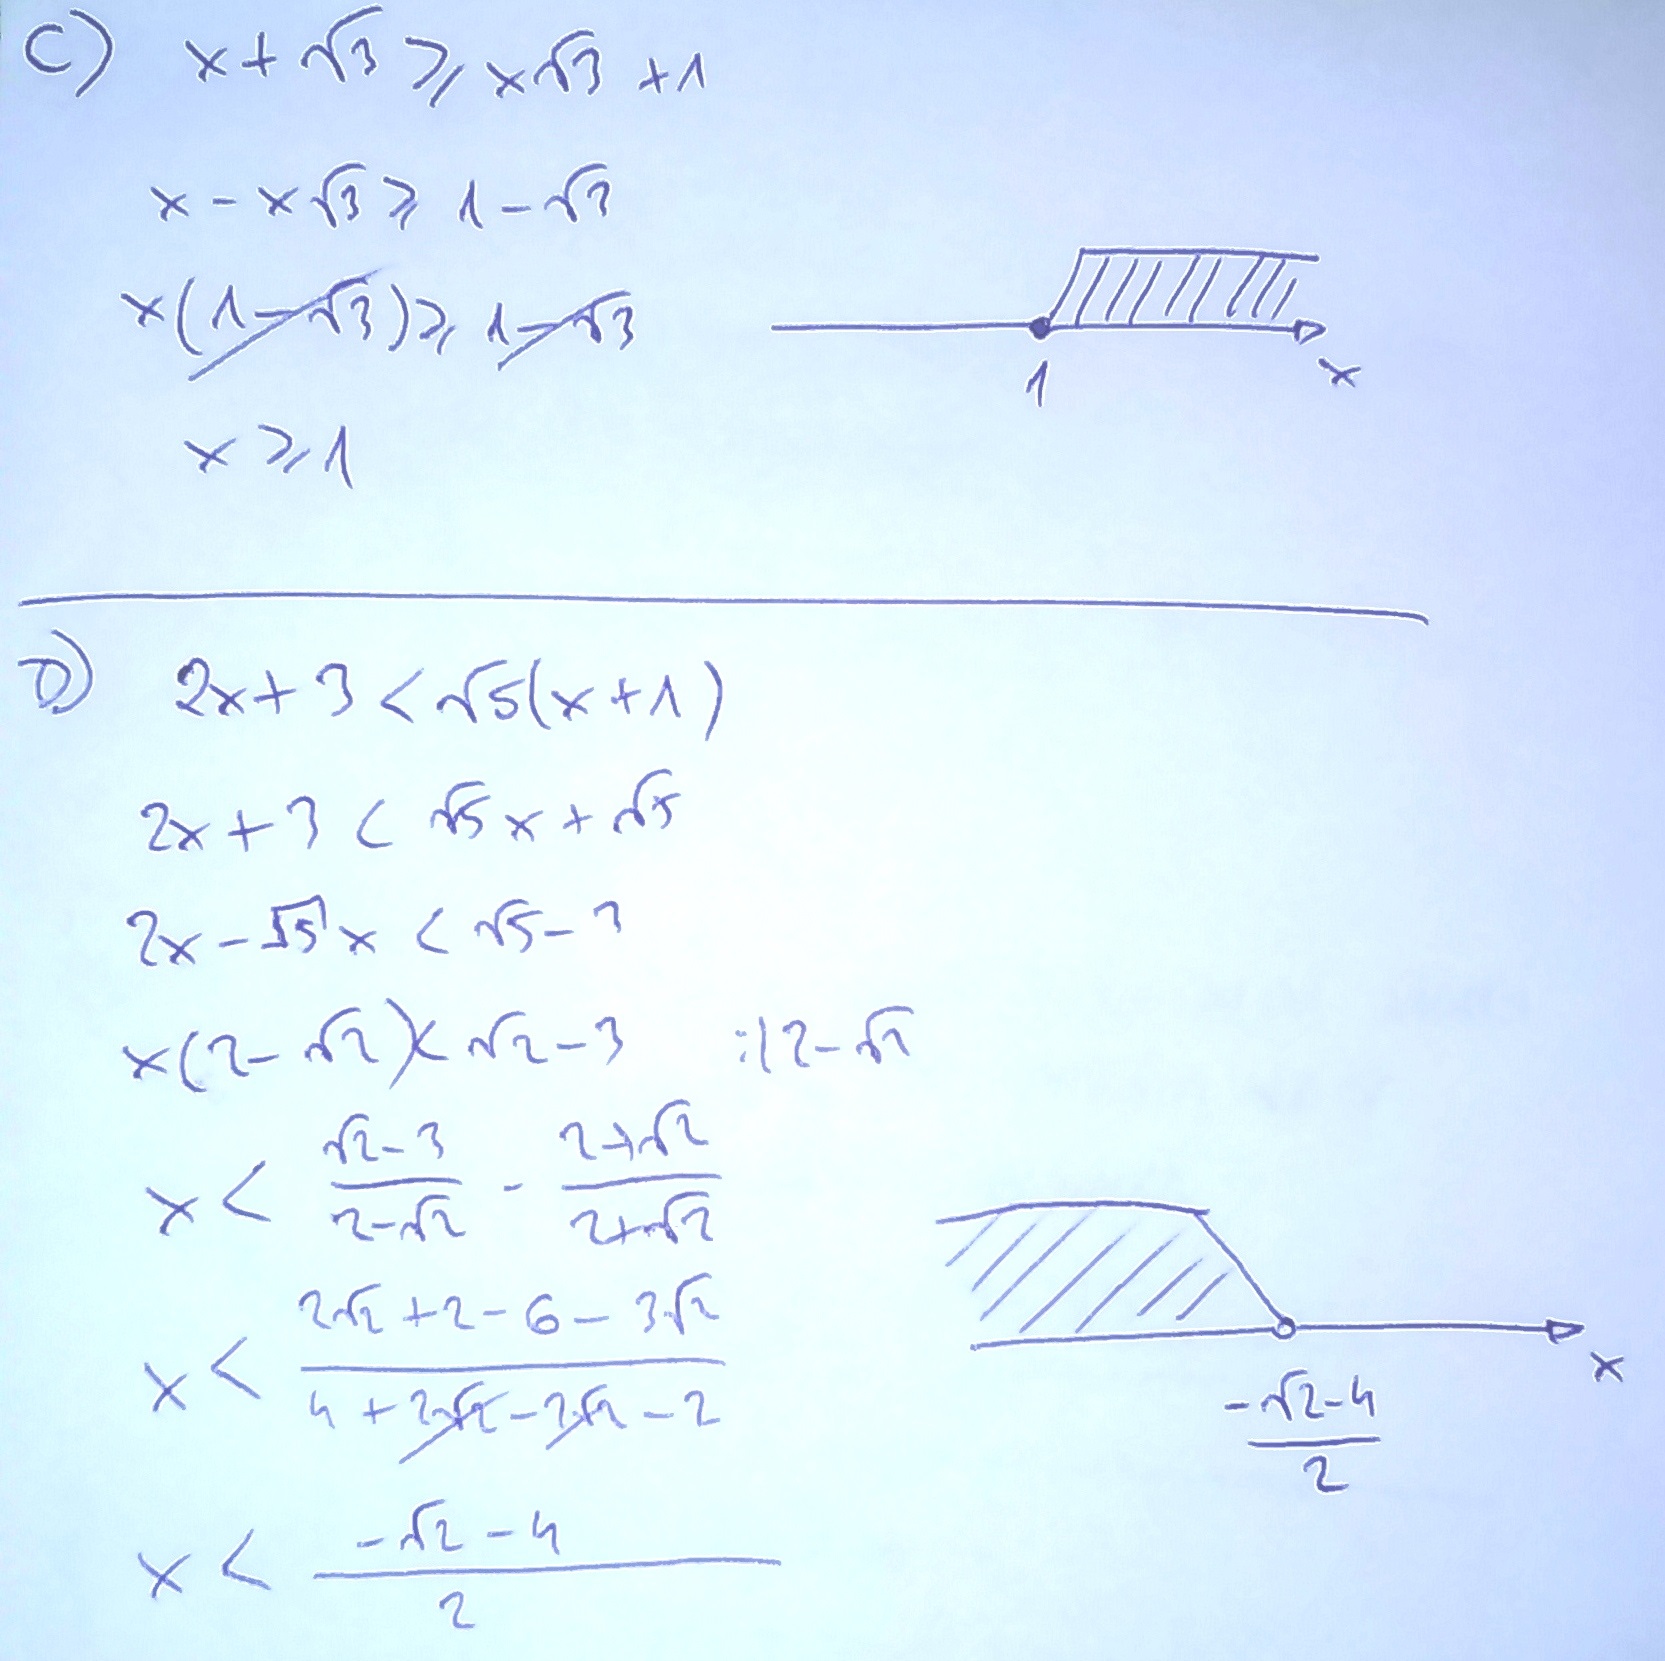 C) x + √3 ⩾ x√3 + 1
x - x√3 ⩾ 1 - √3
x(1-√3) ⩾ 1-√3
x ⩾ 1
1
x
D) 2x + 3 < √5(x+1)
2x + 3 < √5 x + √5
2x - √5 x < √5 - 3
x(2-√2) < √2 - 3 :|2-√2
x < (√2-3)/(2-√2) · (2+√2)/(2+√2)
x < (2√2 + 2 - 6 - 3√2)/(4 + 2√2 - 2√2 - 2)
x < (-√2 - 4)/2
x
(-√2-4)/2